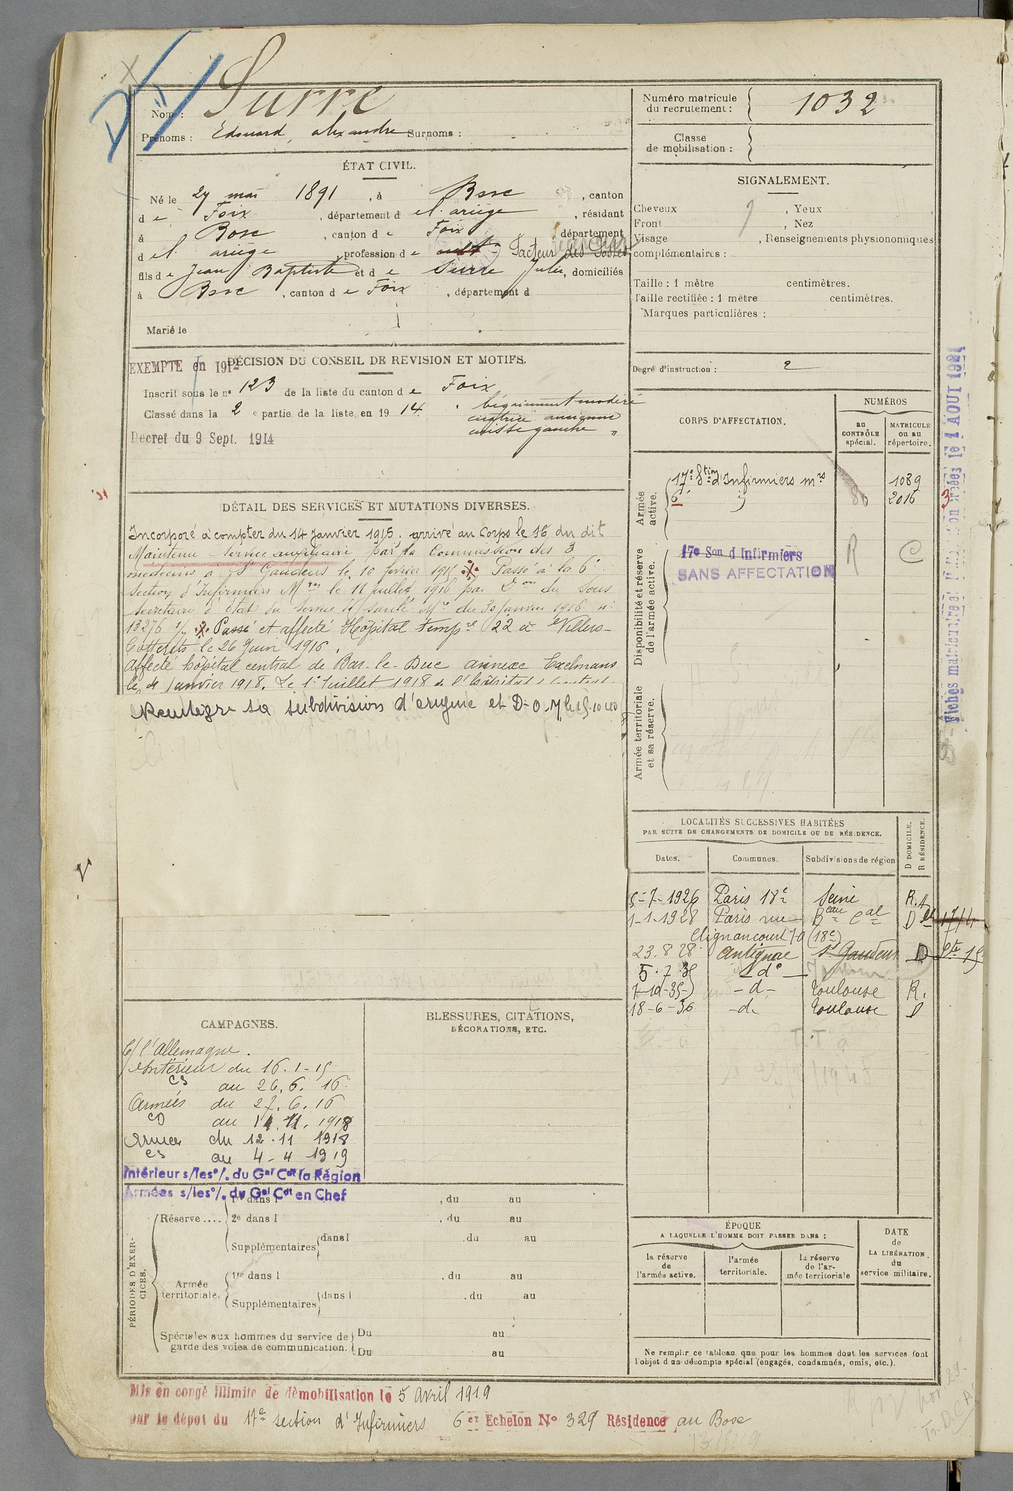 Nom : Surre
Prénoms : Edouard, alexandre Surnoms :
Numéro matricule du recrutement : 1032
Classe de mobilisation :
ÉTAT CIVIL.
Né le 27 mai 1891, à Bosc, canton
d e Foix, département d e l'ariège, résidant
à Bosc, canton d e Foix, département
d e l'ariège, profession d e Facteur des Postes
fils d e Jean Baptiste et d e Surre Julie, domiciliés
à Bosc, canton d e Foix, département d
Marié le
SIGNALEMENT.
Cheveux , Yeux
Front , Nez
Visage , Renseignements physionomiques
complémentaires :
Taille : 1 mètre centimètres.
Taille rectifiée : 1 mètre centimètres.
Marques particulières :
Degré d'instruction : 2
DÉCISION DU CONSEIL DE REVISION ET MOTIFS.
EXEMPTÉ en 1912
Inscrit sous le n° 123 de la liste du canton d e Foix
Classé dans la 2 e partie de la liste en 1914. bégaiement modéré
cicatrice ancienne
cuisse gauche
Décret du 9 Sept. 1914
DÉTAIL DES SERVICES ET MUTATIONS DIVERSES.
Incorporé à compter du 14 janvier 1915, arrivé au Corps le 16 du dit
Maintenu service auxiliaire par la Commission des 3
médecins à St Gaudens le 10 février 1915. Passé à la 6e
Section d'Infirmiers Mres le 11 juillet 1916 par Don du Sous
Secrétaire d'Etat du Service de Santé Mre du 30 janvier 1916 n°
13276 Passé et affecté Hôpital tempre 22 à Villers-
Cotterets le 26 Juin 1916.
Affecté hôpital central de Bar-le-Duc annexe Exelmans
le 4 janvier 1918. Le 1er Juillet 1918 de l'hôpital
Réintègre sa subdivision d'origine et D-O-M
CORPS D'AFFECTATION.
NUMÉROS
au CONTRÔLE spécial.
MATRICULE ou au répertoire.
Armée active.
17e Stion d'Infirmiers mres 1089
6e 2016
Disponibilité et réserve de l'armée active.
17e Son d'Infirmiers
SANS AFFECTATION
R C
Armée territoriale et sa réserve.
LOCALITÉS SUCCESSIVES HABITÉES
PAR SUITE DE CHANGEMENTS DE DOMICILE OU DE RÉSIDENCE.
Dates. Communes. Subdivisions de région
D DOMICILE.
R RÉSIDENCE.
5-7-1926 Paris 18e Seine R.
1-1-1928 Paris rue Beau Cal D
Clignancourt 70 (18e)
23.8.28 Antignac St Gaudens D
5.7.35 d°
7-10-35 - d - Toulouse R.
18-6-36 - d. Toulouse D
CAMPAGNES.
C/ l'Allemagne.
Intérieur du 16.1-15
CS au 26.6.16
Armées du 27.6.16
CD au 11.11.1918
Armées du 12.11 1918
CS au 4-4 1919
Intérieur s/les o/. du Gal Cdt la Région
Armées s/les o/. du Gal Cdt en Chef
BLESSURES, CITATIONS,
DÉCORATIONS, ETC.
PÉRIODES D'EXERCICES.
Réserve....
1re dans l , du au
2e dans l , du au
Supplémentaires dans l , du au
Armée territoriale.
1re dans l , du au
Supplémentaires dans l , du au
Spéciales aux hommes du service de garde des voies de communication.
Du au
Du au
ÉPOQUE
A LAQUELLE L'HOMME DOIT PASSER DANS :
la réserve de l'armée active.
l'armée territoriale.
la réserve de l'armée territoriale
DATE de LA LIBÉRATION du service militaire.
Ne remplir ce tableau que pour les hommes dont les services font
l'objet d'un décompte spécial (engagés, condamnés, omis, etc.).
Mis en congé illimité de démobilisation le 5 Avril 1919
par le dépôt du 17e section d'Infirmiers 6e Echelon No 329 Résidence au Bosc